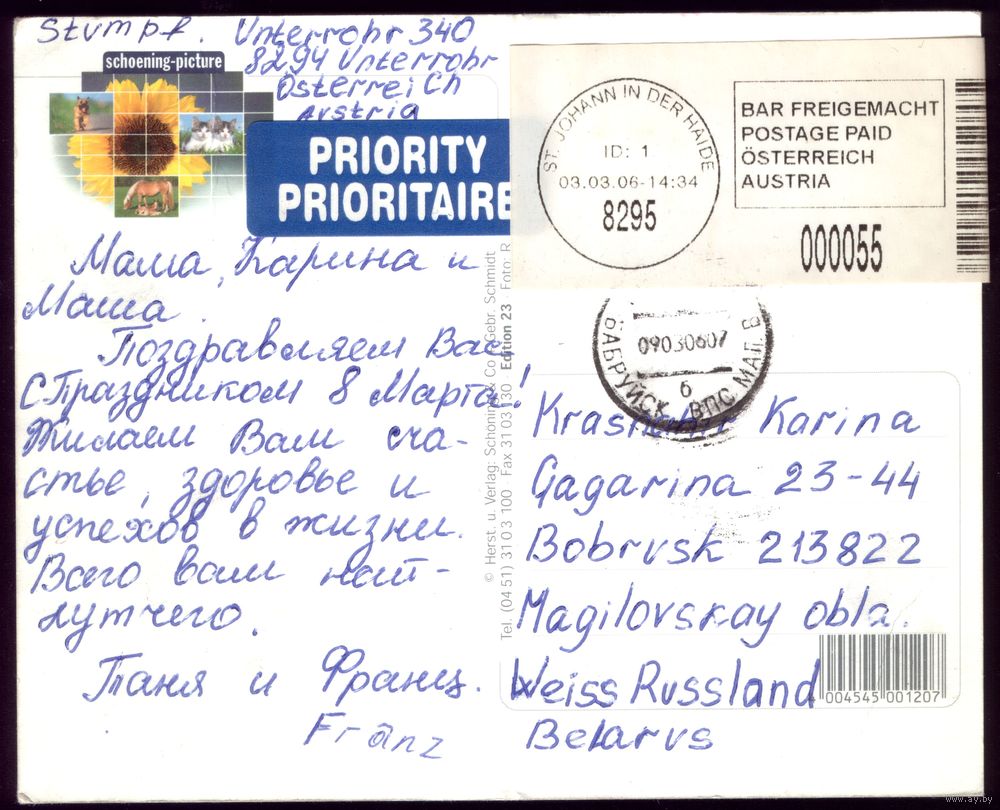 Stumpf. Unterrohr 340
8294 Unterrohr
ÖsterreiCh
Austria
schoening-picture
PRIORITY
PRIORITAIRE
ST. JOHANN IN DER HAIDE
ID: 1
03.03.06-14:34
8295
BAR FREIGEMACHT
POSTAGE PAID
ÖSTERREICH
AUSTRIA
000055
БАБРУЙСК ВПС МАГ. В
09030607
б
Мама, Карина и
Маша.
Поздравляем Вас
с Праздником 8 Марта!
Жилаем Вам сча-
стье, здоровье и
успехов в жизни.
Всего вам най-
лутчего.
Таня и Франц.
Franz
© Herst. u. Verlag: Schöning & Co + Gebr. Schmidt
Tel. (04 51) 31 03 100 · Fax 31 03 130 Edition 23 · Foto: R
Karina
Gagarina 23-44
Bobrusk 213822
Magilovskay obla.
Weiss Russland
Belarus
004545 001207
www.ay.by